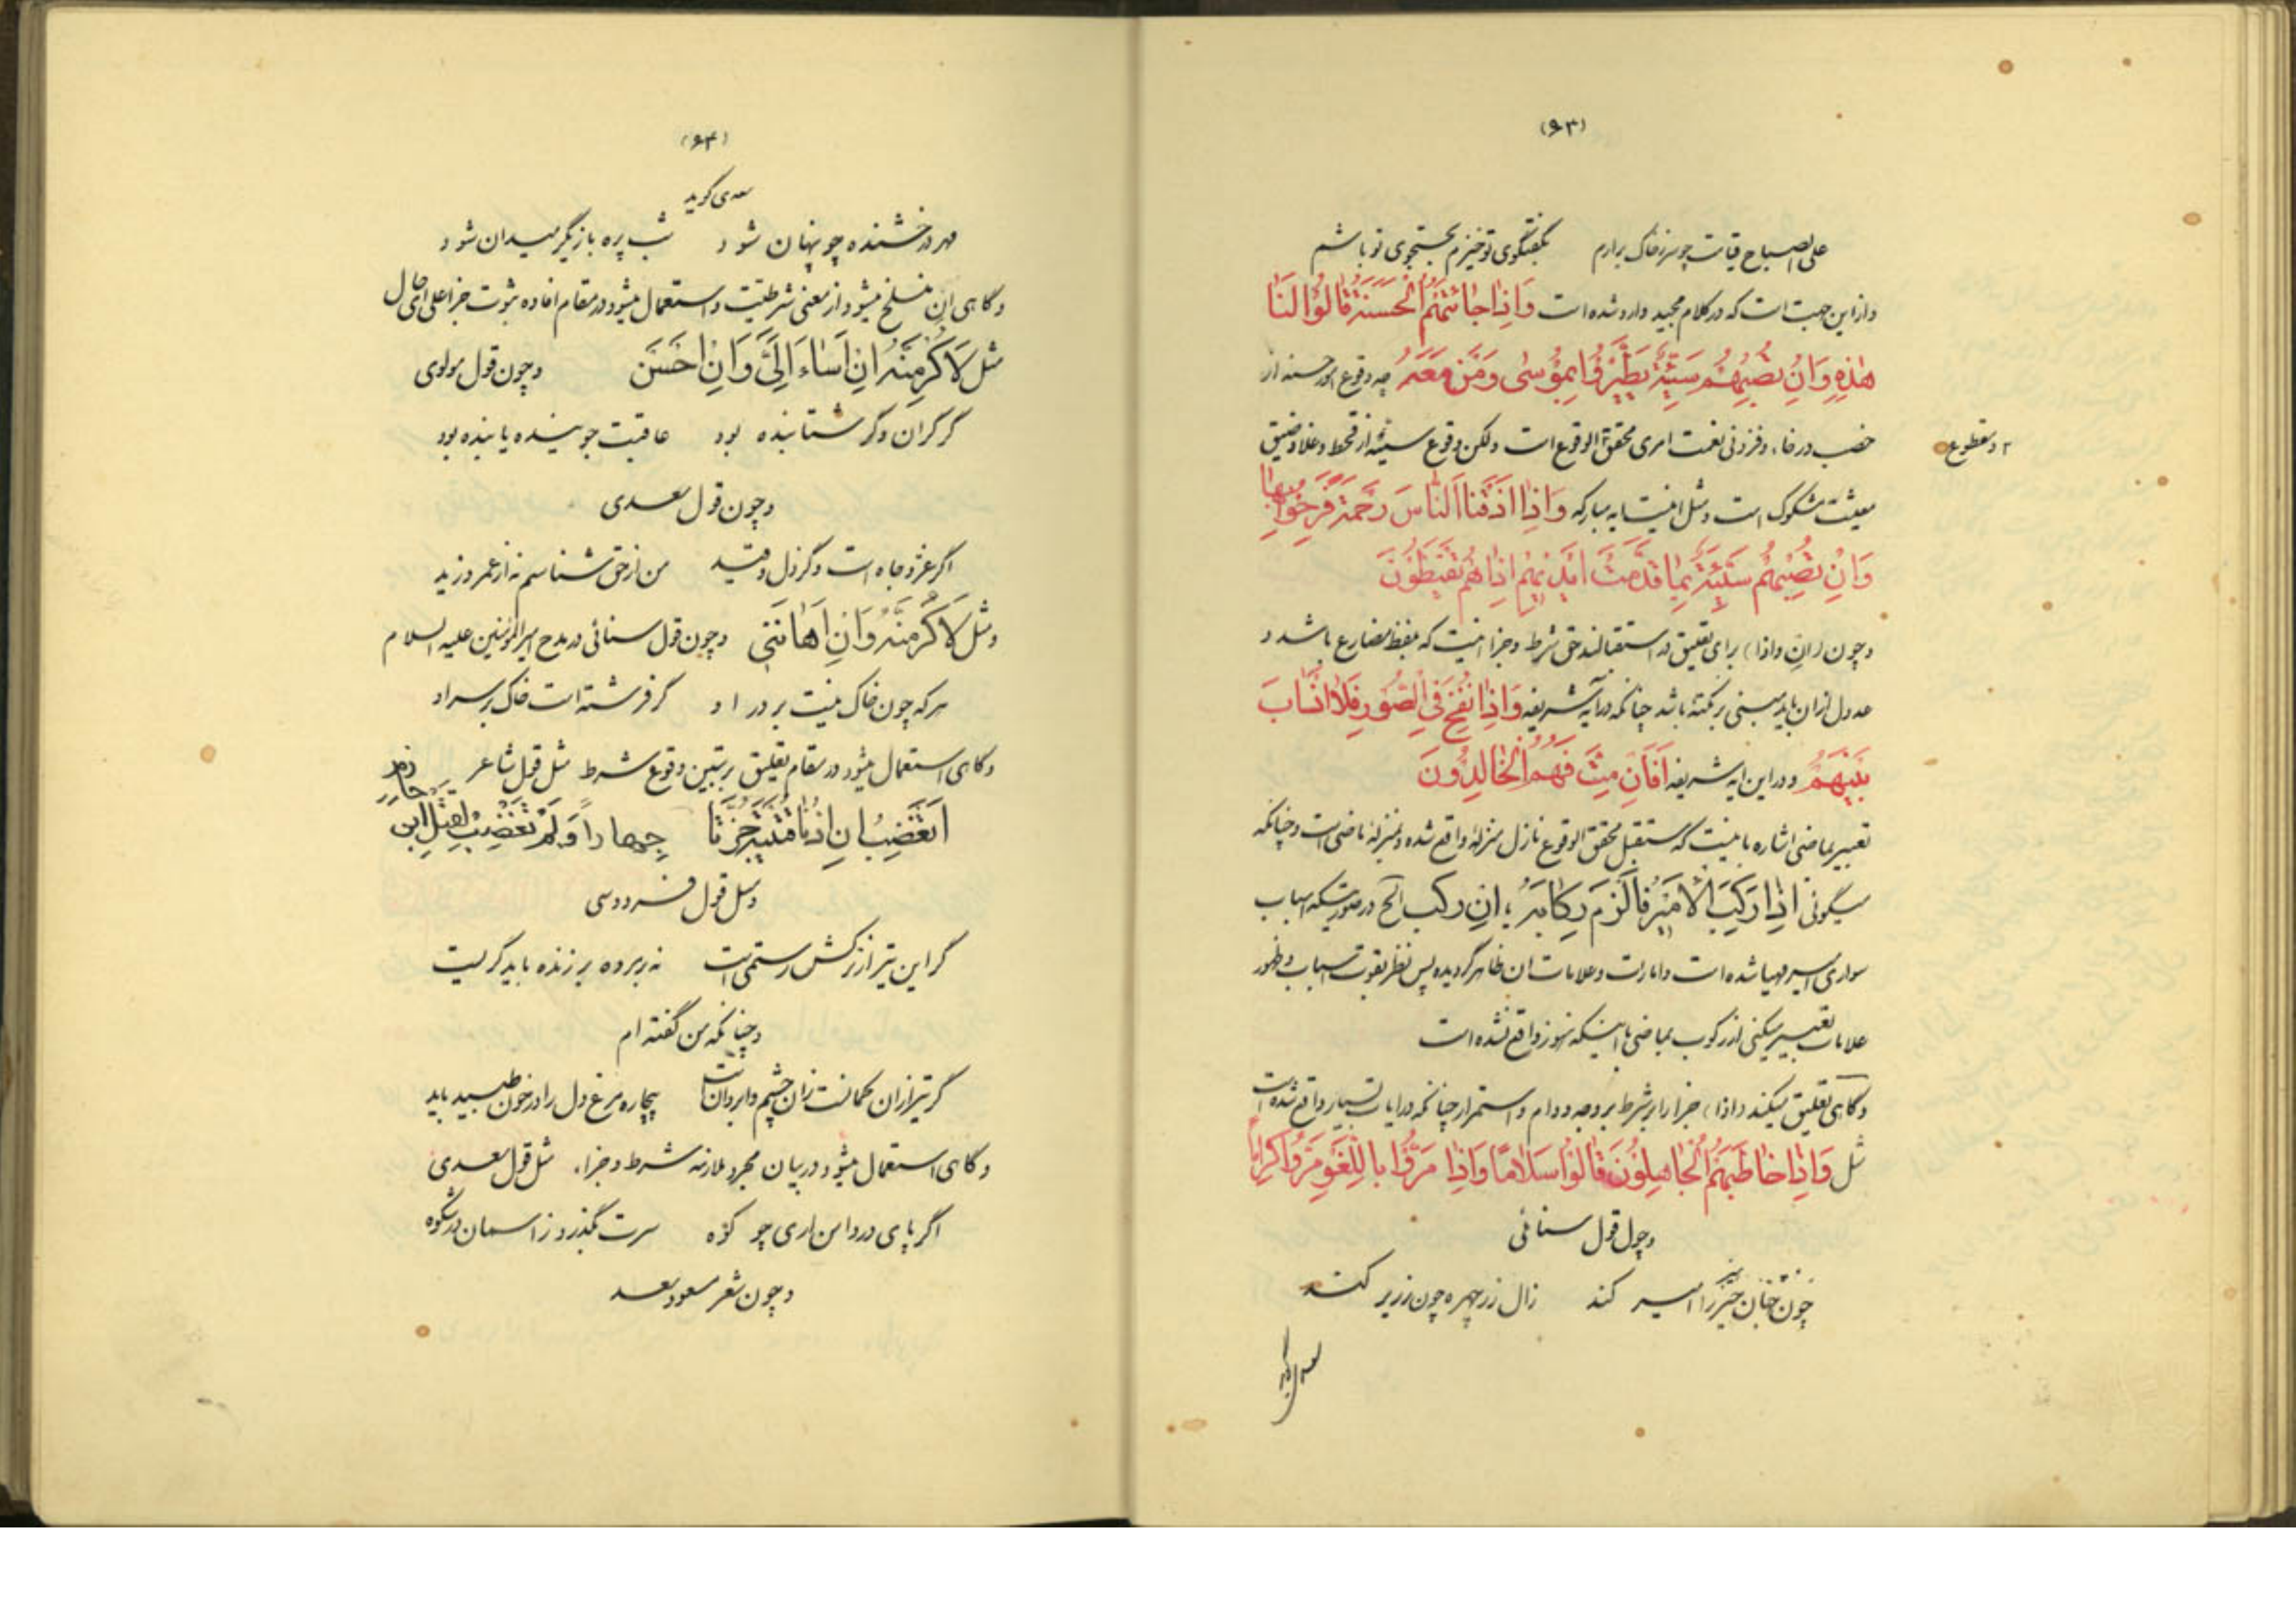 (۶۳)
علی الصباح قیامت چو سر ز خاک برارم بگفتگوی تو خیزم بجستجوی تو باشم
و از این جهت است که در کلام مجید وارد شده است وَاِذا جائَتْهُمُ الْحَسَنَةُ قالُوا لَنا
هٰذِهِ وَاِنْ تُصِبْهُمْ سَيِّئَةٌ يَطَّيَّرُوا بِمُوسٰى وَمَنْ مَعَهُ چه وقوع امور حسنه از
خصب و رخاء و فزونی نعمت امری محقق الوقوع است ولکن وقوع سیئه از قحط و غلا و ضیق
۲ ومقطوع
معیشت مشکوک است و مثل اینست ایه مبارکه وَاِذا اَذَقْنَا النّاسَ رَحْمَةً فَرِحُوا بِها
وَاِنْ تُصِبْهُمْ سَيِّئَةٌ بِما قَدَّمَتْ اَيْدِيهِمْ اِذا هُمْ يَقْنَطُونَ
و چون (ان و اذا) برای تعلیق در استقبالند حق شرط و جزا اینست که بلفظ مضارع باشد و
عدول از ان باید مبنی بر نکته باشد چنانکه در آیه شریفه وَاِذا نُفِخَ فِي الصُّورِ فَلا اَنْسابَ
بَيْنَهُمْ و در این ایه شریفه اَفَاِنْ مِتَّ فَهُمُ الْخالِدُونَ
تعبیر بماضی اشاره باینست که مستقبل محقق الوقوع نازل منزله واقع شده و بمنزله ماضی است و چنانکه
میگوئی اِذا رَكِبَ الْاَمِيرُ فَالْزَمْ رِكابَهُ ؛ اِن رکب الخ در صورتیکه اسباب
سواری امیر مهیا شده است و امارت و علامات ان ظاهر گردیده پس نظر بقوت اسباب و ظهور
علامات تعبیر میکنی از رکوب بماضی با اینکه هنوز واقع نشده است
و گاهی تعلیق میکند (اذا) جزا را بر شرط بر وجه دوام و استمرار چنانکه در ایات بسیار واقع شده است
مثل وَاِذا خاطَبَهُمُ الْجاهِلُونَ قالُوا سَلامًا وَاِذا مَرُّوا بِاللَّغْوِ مَرُّوا كِرامًا
و چون قول سنائی
چون چنان خیز را اسیر کند زال زر چهره چون زریر کند
سعدی گوید
(۶۴)
سعدی گوید
مهر درخشنده چو پنهان شود شب پره بازیگر میدان شود
و گاهی ان منسلخ میشود از معنی شرطیت و استعمال میشود در مقام افاده ثبوت جزا علی ای حال
مثل لَاُكْرِمَنَّهُ اِنْ اَساءَ اِلَيَّ وَاِنْ اَحْسَنَ و چون قول مولوی
گر گران و گر شتابنده بود عاقبت جوینده یابنده بود
و چون قول سعدی
اگر عز و جاه است و گر ذل و قید من از حق شناسم نه از عمرو و زید
و مثل لَاُكْرِمَنَّهُ وَاِنْ اَهانَنِي و چون قول سنائی در مدح امیر المؤمنین علیه السلام
هر که چون خاک نیست بر در او گر فرشته است خاک بر سر او
و گاهی استعمال میشود در مقام تعلیق بر تبین وقوع شرط مثل قول شاعر
اَتَغْضَبُ اِنْ اُذْنا قُتَيْبَةَ حُزَّتا جِهارًا وَلَمْ تَغْضَبْ لِقَتْلِ ابْنِ حازم
و مثل قول فردوسی
گر این تیر از ترکش رستمی است نه بر مرده بر زنده باید گریست
و چنانکه من گفته ام
گر تیر از ان کمانست زان چشم و ابروانت بیچاره مرغ دل را در خون طپید باید
و گاهی استعمال میشود در بیان مجرد ملازمه شرط و جزاء مثل قول سعدی
اگر پای در دامن اری چو کوه سرت بگذرد ز اسمان در شکوه
و چون شعر مسعود سعد